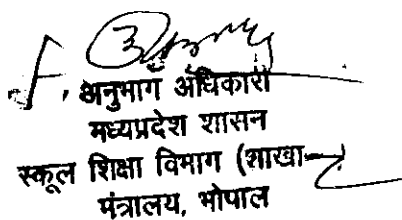 अनुभाग अधिकारी
मध्यप्रदेश शासन
स्कूल शिक्षा विभाग (शाखा—
मंत्रालय, भोपाल